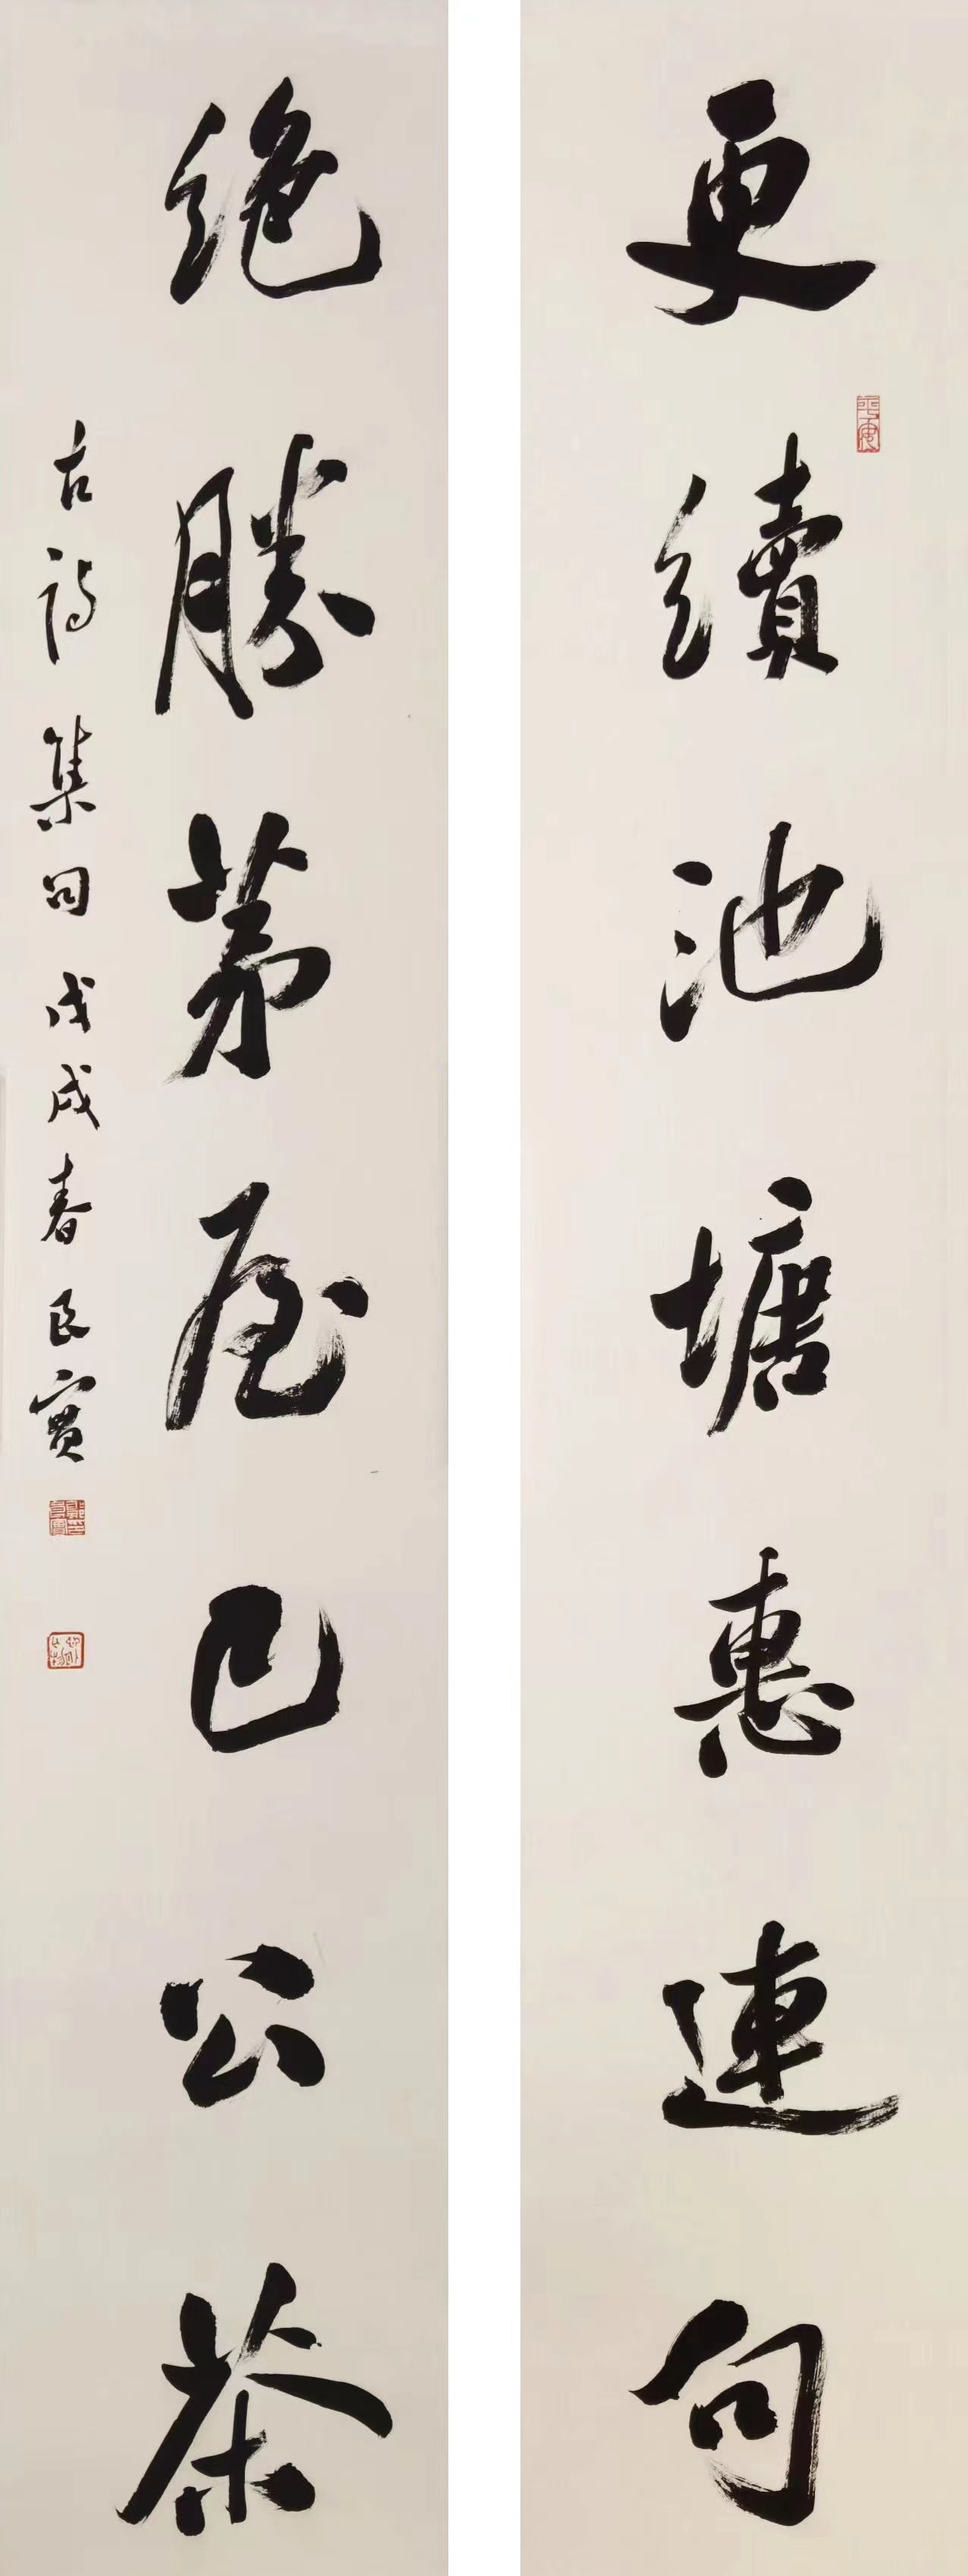 更續池塘惠連句
絶勝茅屋已公茶
古詩集句戊戌春良實